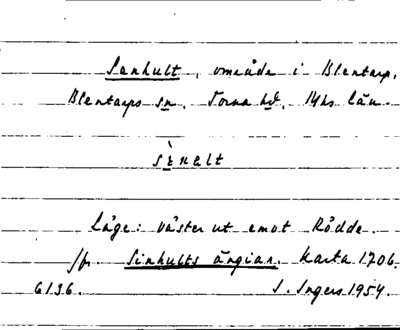 Sanhult, område i Blentarp,
Blentarps sn. Torna hd. Mhs län.
sѐnalt
Läge: väster ut emot Rödde.
Jfr. Sinhults ängiar. Karta 1706.
6136. I. Ingers 1954.